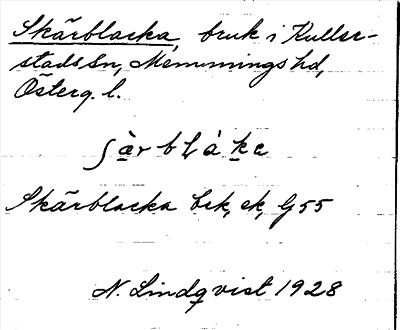 Skärblacka, bruk i Kuller-
stads sn, Memmings hd,
Österg. l.
Skärblacka brk, ek, G 55
N. Lindqvist 1928